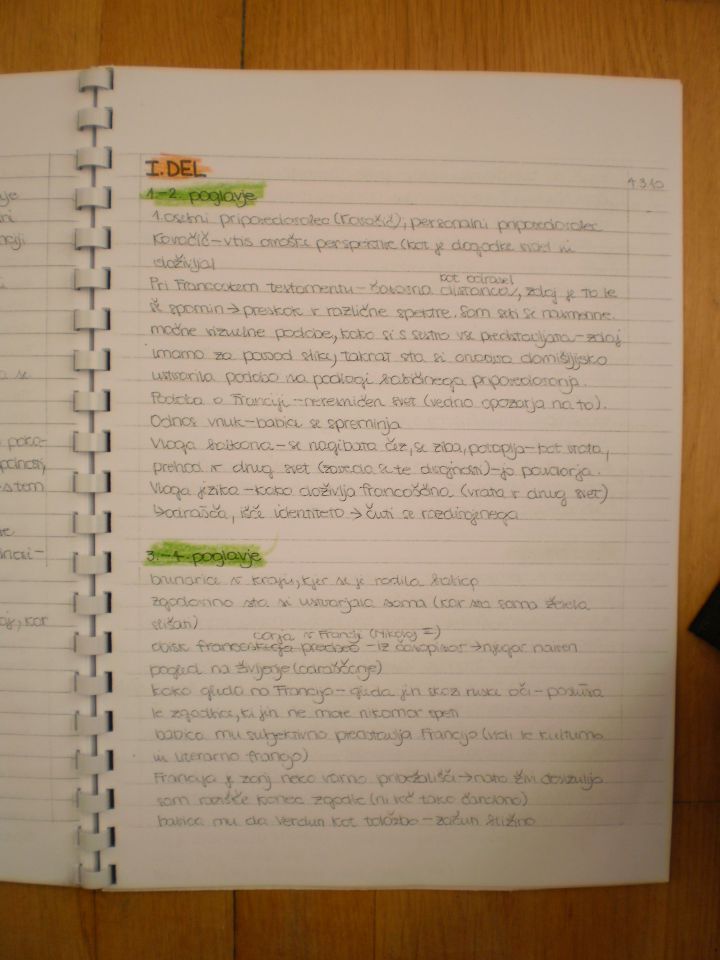 I. DEL
4.3.10
1.-2. poglavje
1.osebni pripovedovalec (Kovačič), personalni pripovedovalec
Kovačič - vtis otroške perspektive (kot je dogodke videl in
doživljal
kot odrasel
Pri Francoskem testamentu - časovna distanca, zdaj je to le
še spomin → preskok v različne spektre. Sam sebi se nasmehne.
močne vizualne podobe, kako si s sestro vse predstavljata - zdaj
imamo za povod slike, takrat sta si onadva domišljijsko
ustvarila podobo na podlagi babičinega pripovedovanja.
Podoba o Franciji - neresničen svet (vedno opozarja na to).
Odnos vnuk-babica se spreminja
Vloga balkona - se nagibata čez, se ziba, potaplja - kot vrata,
prehod v drug svet (zaveda se te dvojnosti) - jo poudarja.
Vloga jezika - kako doživlja francoščino (vrata v drug svet)
↳ odrašča, išče identiteto → čuti se razdvojenega
3.-4. poglavje
brunarica v kraju, kjer se je rodila babica
zgodovino sta si ustvarjala sama (kar sta sama želela
slišati)
carja v Franciji (Nikolaj II)
obisk francoskega - iz časopisov → njegov naiven
pogled na življenje (odraščanje)
kako gleda na Francijo - gleda jih skozi ruske oči - posluša
le zgodbice, ki jih ne more nikomur
babica mu subjektivno predstavlja Francijo (vidi le kulturno
in literarno Francijo)
Francija je zanj neko varno pribežališče → nato živi
sam razišče konec zgodbe (ni več tako čarobno)
babica mu da Verdun kot tolažbo - začuti bližino